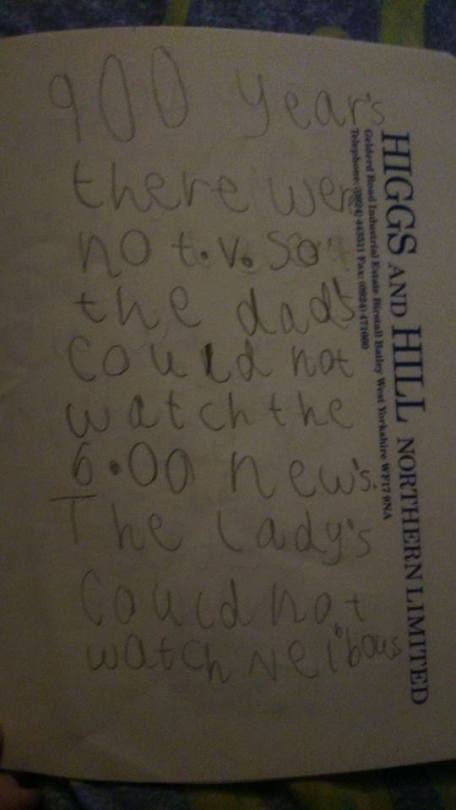 900 year's
there were
no t.v. so
the dad's
could not
watch the
6.00 new's.
The Lady's
could not
watch Neibous
HIGGS AND HILL NORTHERN LIMITED
Gelderd Road Industrial Estate Birstall Batley West Yorkshire WF17 9NA
Telephone: (0924) 443511 Fax: (0924) 471600